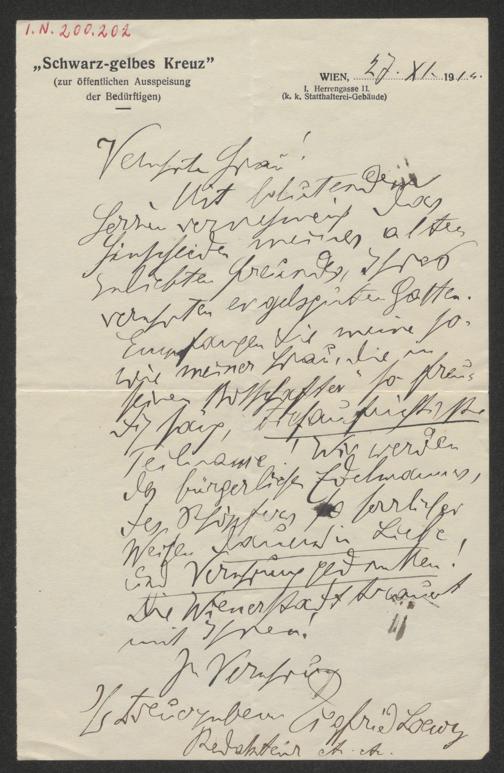 I.N. 200.202
„Schwarz-gelbes Kreuz"
(zur öffentlichen Ausspeisung
der Bedürftigen)
WIEN, 27. XI. 191
I. Herrengasse 11.
(k. k. Statthalterei-Gebäude)
Verehrte Frau!
Mit blutendem
Herzen vernehme ich das
Hinscheiden meines alten
geliebten Freundes, Ihres
verehrten Gatten.
Empfangen Sie meine so-
wie meiner Frau, die in
seinen
Teilname! Wir werden
des bürgerlichen Edelmannes,
des Schöpfers so herrlicher
Weisen in Liebe
und Verehrung gedenken!
Die Wienerstadt trauert
mit Ihnen!
In Verehrung
Ihr treuergebener Siegfried Loewy
Redakteur etc. etc.